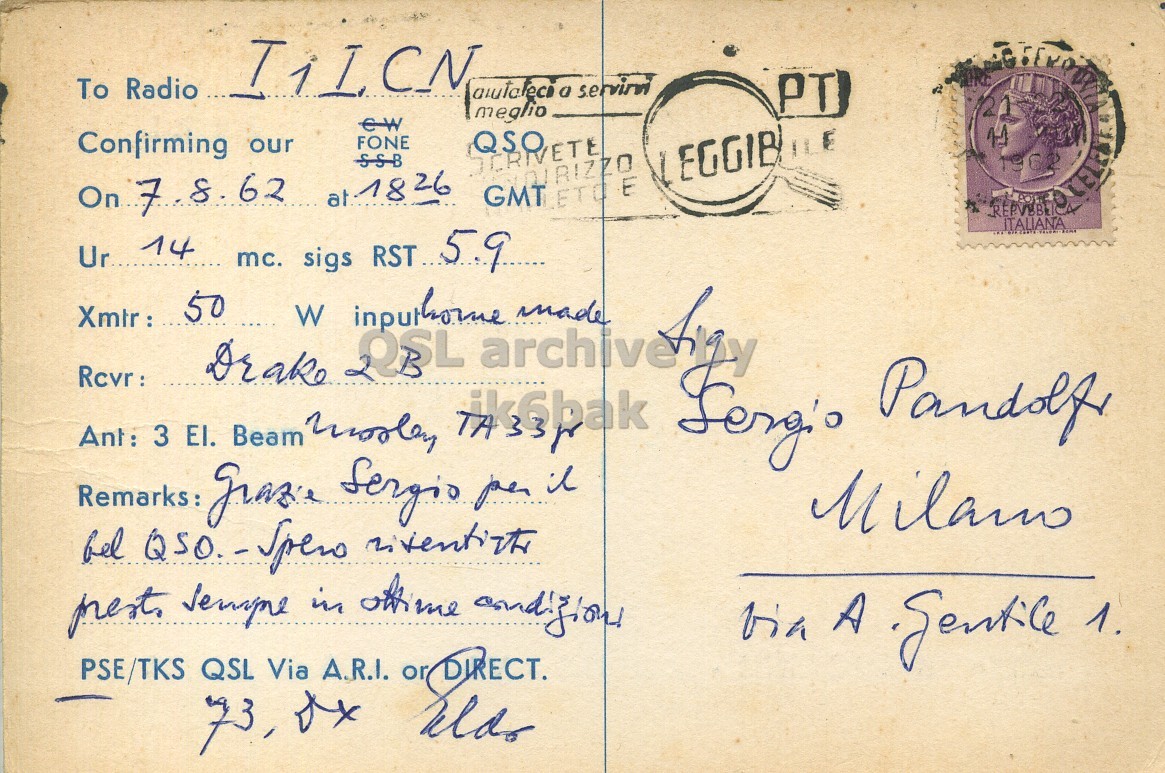 To Radio I1ICN
Confirming our CW FONE SSB QSO
On 7.8.62 at 1826 GMT
Ur 14 mc. sigs RST 5.9
Xmtr: 50 W input home made
Rcvr: Drake 2 B
Ant: 3 El. Beam Mosley TA33jr
Remarks: Grazie Sergio per il
bel QSO. - Spero risentirti
presto sempre in ottime condizioni
PSE/TKS QSL Via A.R.I. or DIRECT.
73, DX Aldo
aiutateci a servirvi
meglio
PT
SCRIVETE
INDIRIZZO
COMPLETO E LEGGIBILE
LIRE
21
1962
POSTE
REPVBBLICA
ITALIANA
Sig
Sergio Pandolfi
Milano
Via A. Gentile 1.
QSL archive by
ik6bak